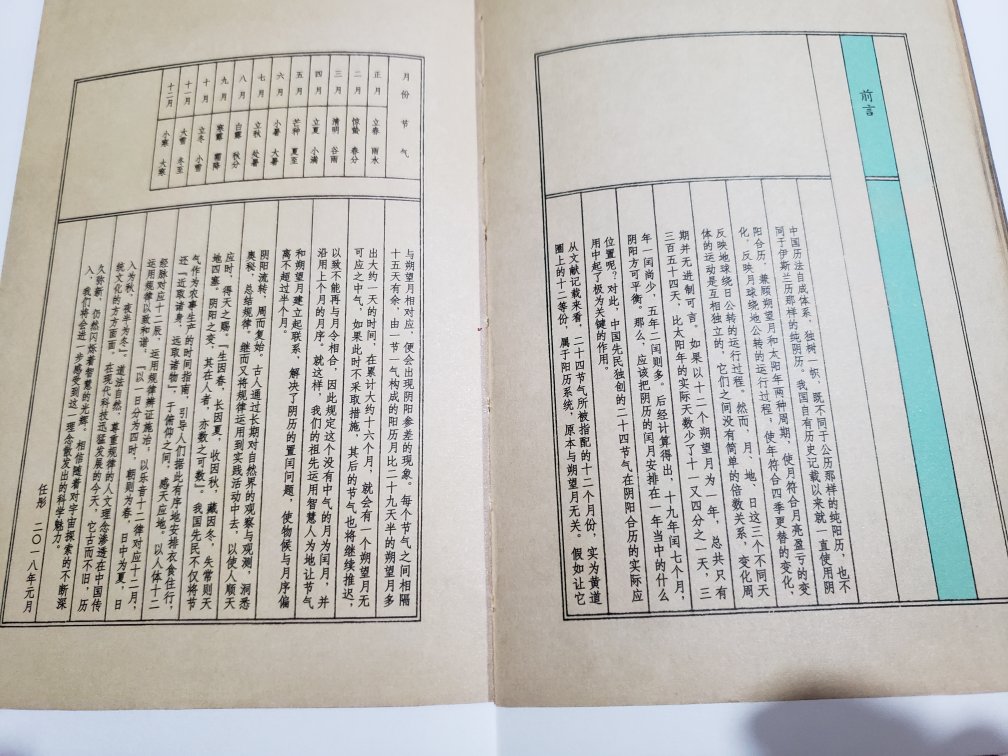 前言
中国历法自成体系，独树一帜，既不同于公历那样的纯阳历，也不
同于伊斯兰历那样的纯阴历。我国自有历史记载以来就一直使用阴
阳合历，兼顾朔望月和太阳年两种周期，使月符合月亮盈亏的变
化，反映月球绕地公转的运行过程，使年符合四季更替的变化，
反映地球绕日公转的运行过程。然而，月、地、日这三个不同天
体的运动是互相独立的，它们之间没有简单的倍数关系，变化周
期并无进制可言。如果以十二个朔望月为一年，总共只有
三百五十四天，比太阳年的实际天数少了十一又四分之一天，三
年一闰尚少，五年二闰则多。后经计算得出，十九年闰七个月，
阴阳方可平衡。那么，应该把阴历的闰月安排在一年当中的什么
位置呢？对此，中国先民独创的二十四节气在阴阳合历的实际应
用中起了极为关键的作用。
从文献记载来看，二十四节气所被指配的十二个月份，实为黄道
圈上的十二等份，属于阳历系统，原本与朔望月无关。假如让它
月份 节气
正月 立春 雨水
二月 惊蛰 春分
三月 清明 谷雨
四月 立夏 小满
五月 芒种 夏至
六月 小暑 大暑
七月 立秋 处暑
八月 白露 秋分
九月 寒露 霜降
十月 立冬 小雪
十一月 大雪 冬至
十二月 小寒 大寒
与朔望月相对应，便会出现阴阳参差的现象。每个节气之间相隔
十五天有余，由一节一气构成的阳历月比二十九天半的朔望月多
出大约一天的时间，在累计大约十六个月，就会有一个朔望月无
可应之中气，如果此时不采取措施，其后的节气也将继续推迟，
以致不能再与月令相合，因此规定这个没有中气的月为闰月，并
沿用上个月的月序。就这样，我们的祖先运用智慧人为地让节气
和朔望月建立起联系，解决了阴历的置闰问题，使物候与月序偏
离不超过半个月。
阴阳流转，周而复始。古人通过长期对自然界的观察与观测，洞悉
奥秘，总结规律。继而又将规律运用到实践活动中去，以使人顺天
应时，得天之赐。『生因春，长因夏，收因秋，藏因冬，失常则天
地四塞。阴阳之变，其在人者，亦数之可数』。我国先民不仅将节
气作为农事生产的时间指南，引导人们据此有序地安排衣食住行，
还『近取诸身，远取诸物』，于俯仰之间，感天应地。以人体十二
经脉对应十二辰，运用规律辨证施治；以乐音十二律对应十二月，
运用规律以致和谐。『以一日分为四时，朝则为春，日中为夏，日
入为秋，夜半为冬』。道法自然、尊重规律的人文理念渗透在中国传
统文化的方方面面。在现代科技迅猛发展的今天，它古而不旧，历
久弥新，仍然闪烁着智慧的光辉。相信随着对宇宙探索的不断深
入，我们将会进一步感受到这一理念散发出的科学魅力。
任彤 二〇一八年元月